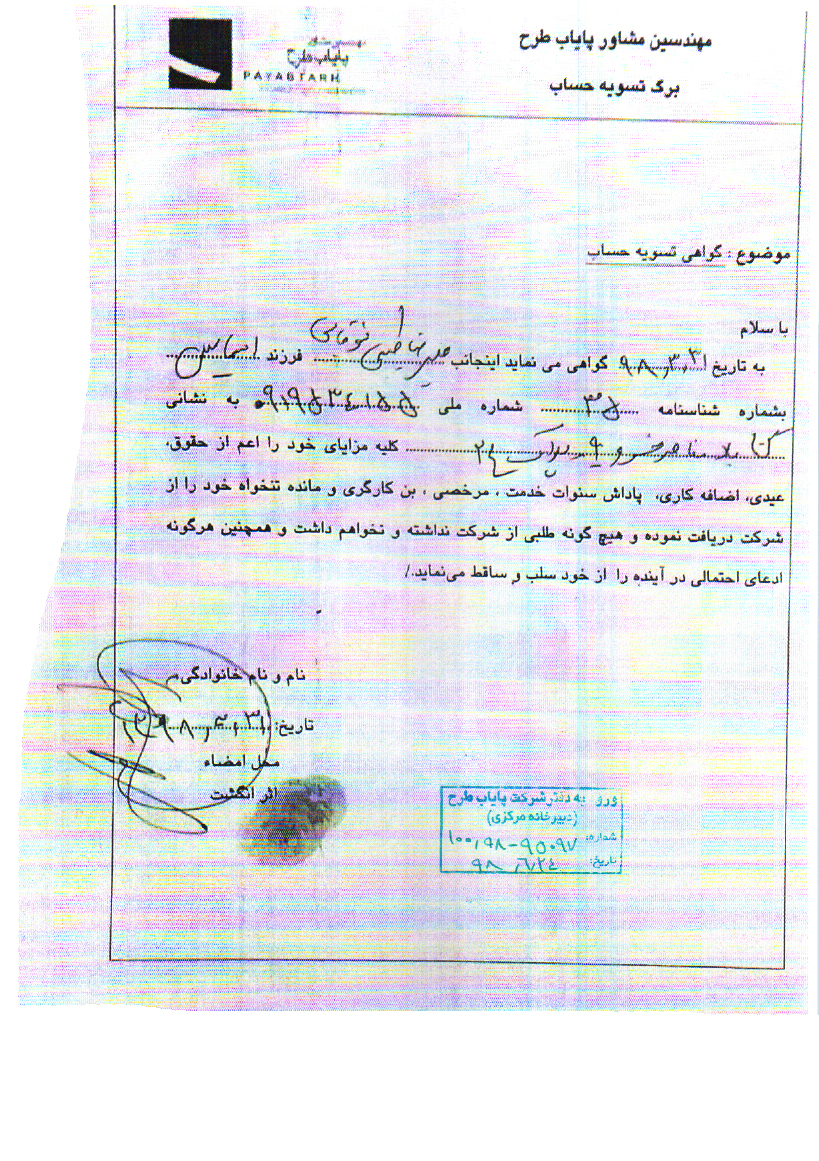 مهندسین مشاور پایاب طرح
برگ تسویه حساب
پایاب طرح
PAYABTARH
موضوع : گواهی تسویه حساب
با سلام
به تاریخ ۹۸,۳,۳۱ گواهی می نماید اینجانب علیرضا فرزند اسماعیل
بشماره شناسنامه شماره ملی به نشانی
کلیه مزایای خود را اعم از حقوق،
عیدی، اضافه کاری، پاداش سنوات خدمت ، مرخصی ، بن کارگری و مانده تنخواه خود را از
شرکت دریافت نموده و هیچ گونه طلبی از شرکت نداشته و نخواهم داشت و همچنین هرگونه
ادعای احتمالی در آینده را از خود سلب و ساقط می‌نماید./
نام و نام خانوادگی:
تاریخ: ۱۳۹۸,۳,۳۱
محل امضاء
اثر انگشت
ورود به دفتر شرکت پایاب طرح
(دبیرخانه مرکزی)
شماره:
تاریخ: